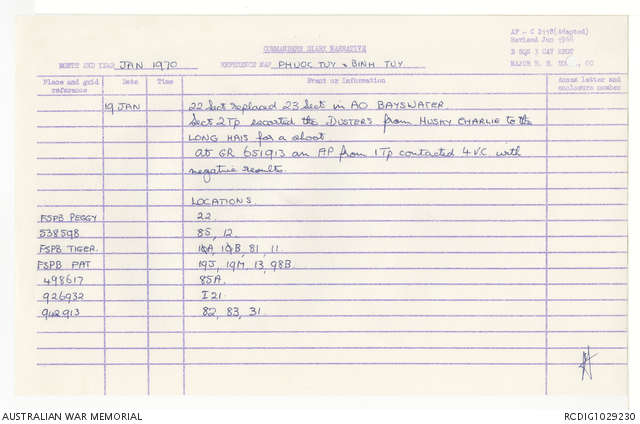 AF - C 2118 (Adapted)
Revised Jun 1966
COMMANDERS DIARY NARRATIVE
B SQN 3 CAV REGT
MONTH AND YEAR JAN 1970 REFERENCE MAP PHUOC TUY & BINH TUY MAJOR OC
Place and grid reference Date Time Event or Information Annex letter and enclosure number
19 JAN 22 Sect replaced 23 Sect in AO BAYSWATER.
Sect 2Tp escorted the DUSTERS from HUSKY CHARLIE to the
LONG HAIS for a shoot.
At GR 651913 an AP from 1Tp contacted 4 VC with
negative results.
LOCATIONS.
FSPB PEGGY 22.
538598 8S, 12.
FSPB TIGER. 81, 11.
FSPB PAT 19J, 19M, 13, 98B.
498617 85A.
926932 I21.
942913 82, 83, 31.
AUSTRALIAN WAR MEMORIAL RCDIG1029230